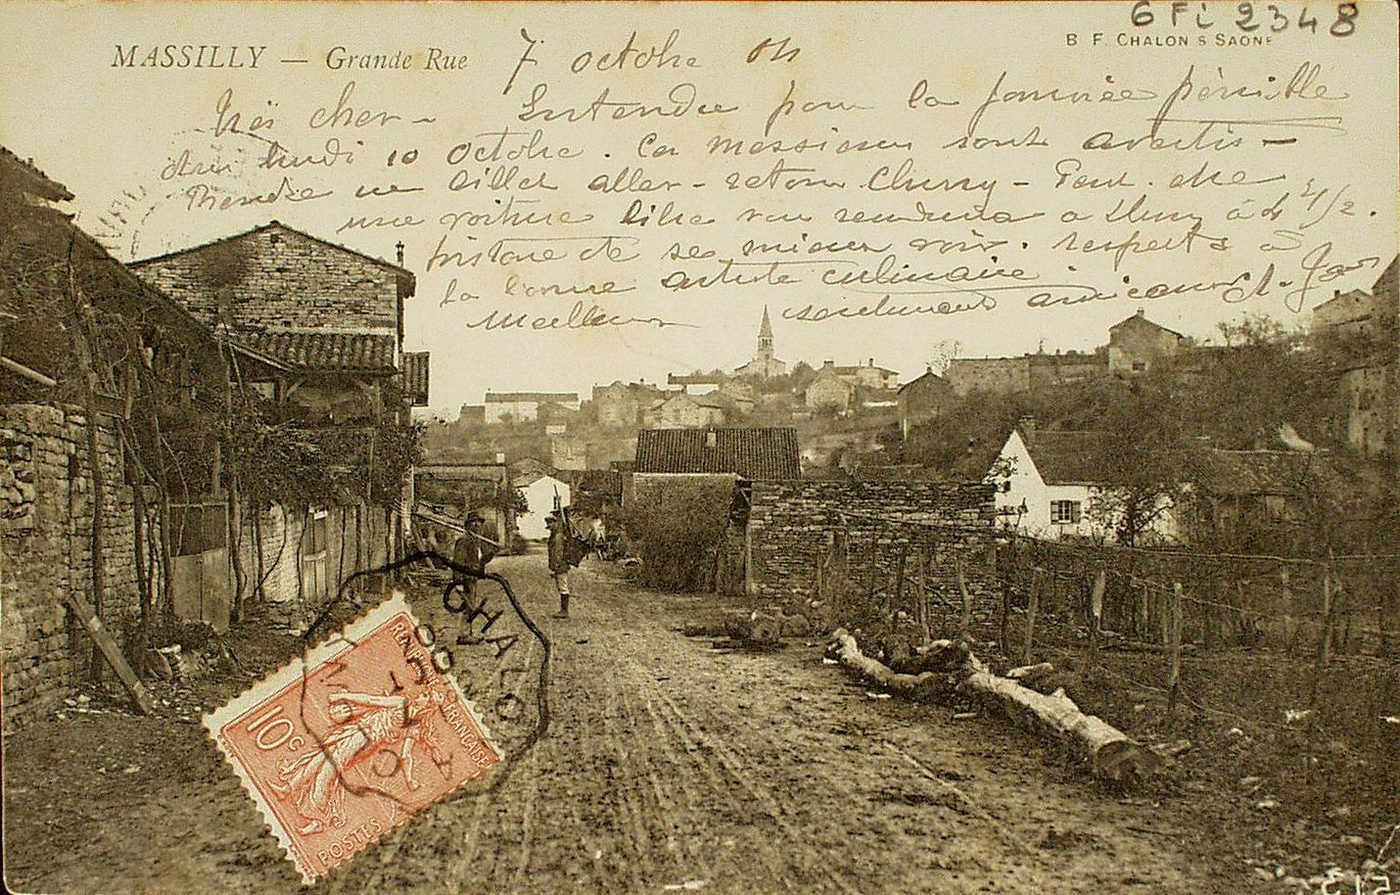 6 Fi 2348
MASSILLY — Grande Rue
B F, CHALON S SAONE
7 octobre 04
cher - Entendu pour la journée pénible
du lundi 10 Octobre. Ces messieurs sont avertis -
Prendre un billet aller-retour Cluny -
une voiture vous à Cluny à 4 1/2.
histoire de se mieux voir. respects à
la bonne artiste culinaire.
Meilleurs
CHALO
RÉPUBLIQUE FRANÇAISE
10c
POSTES